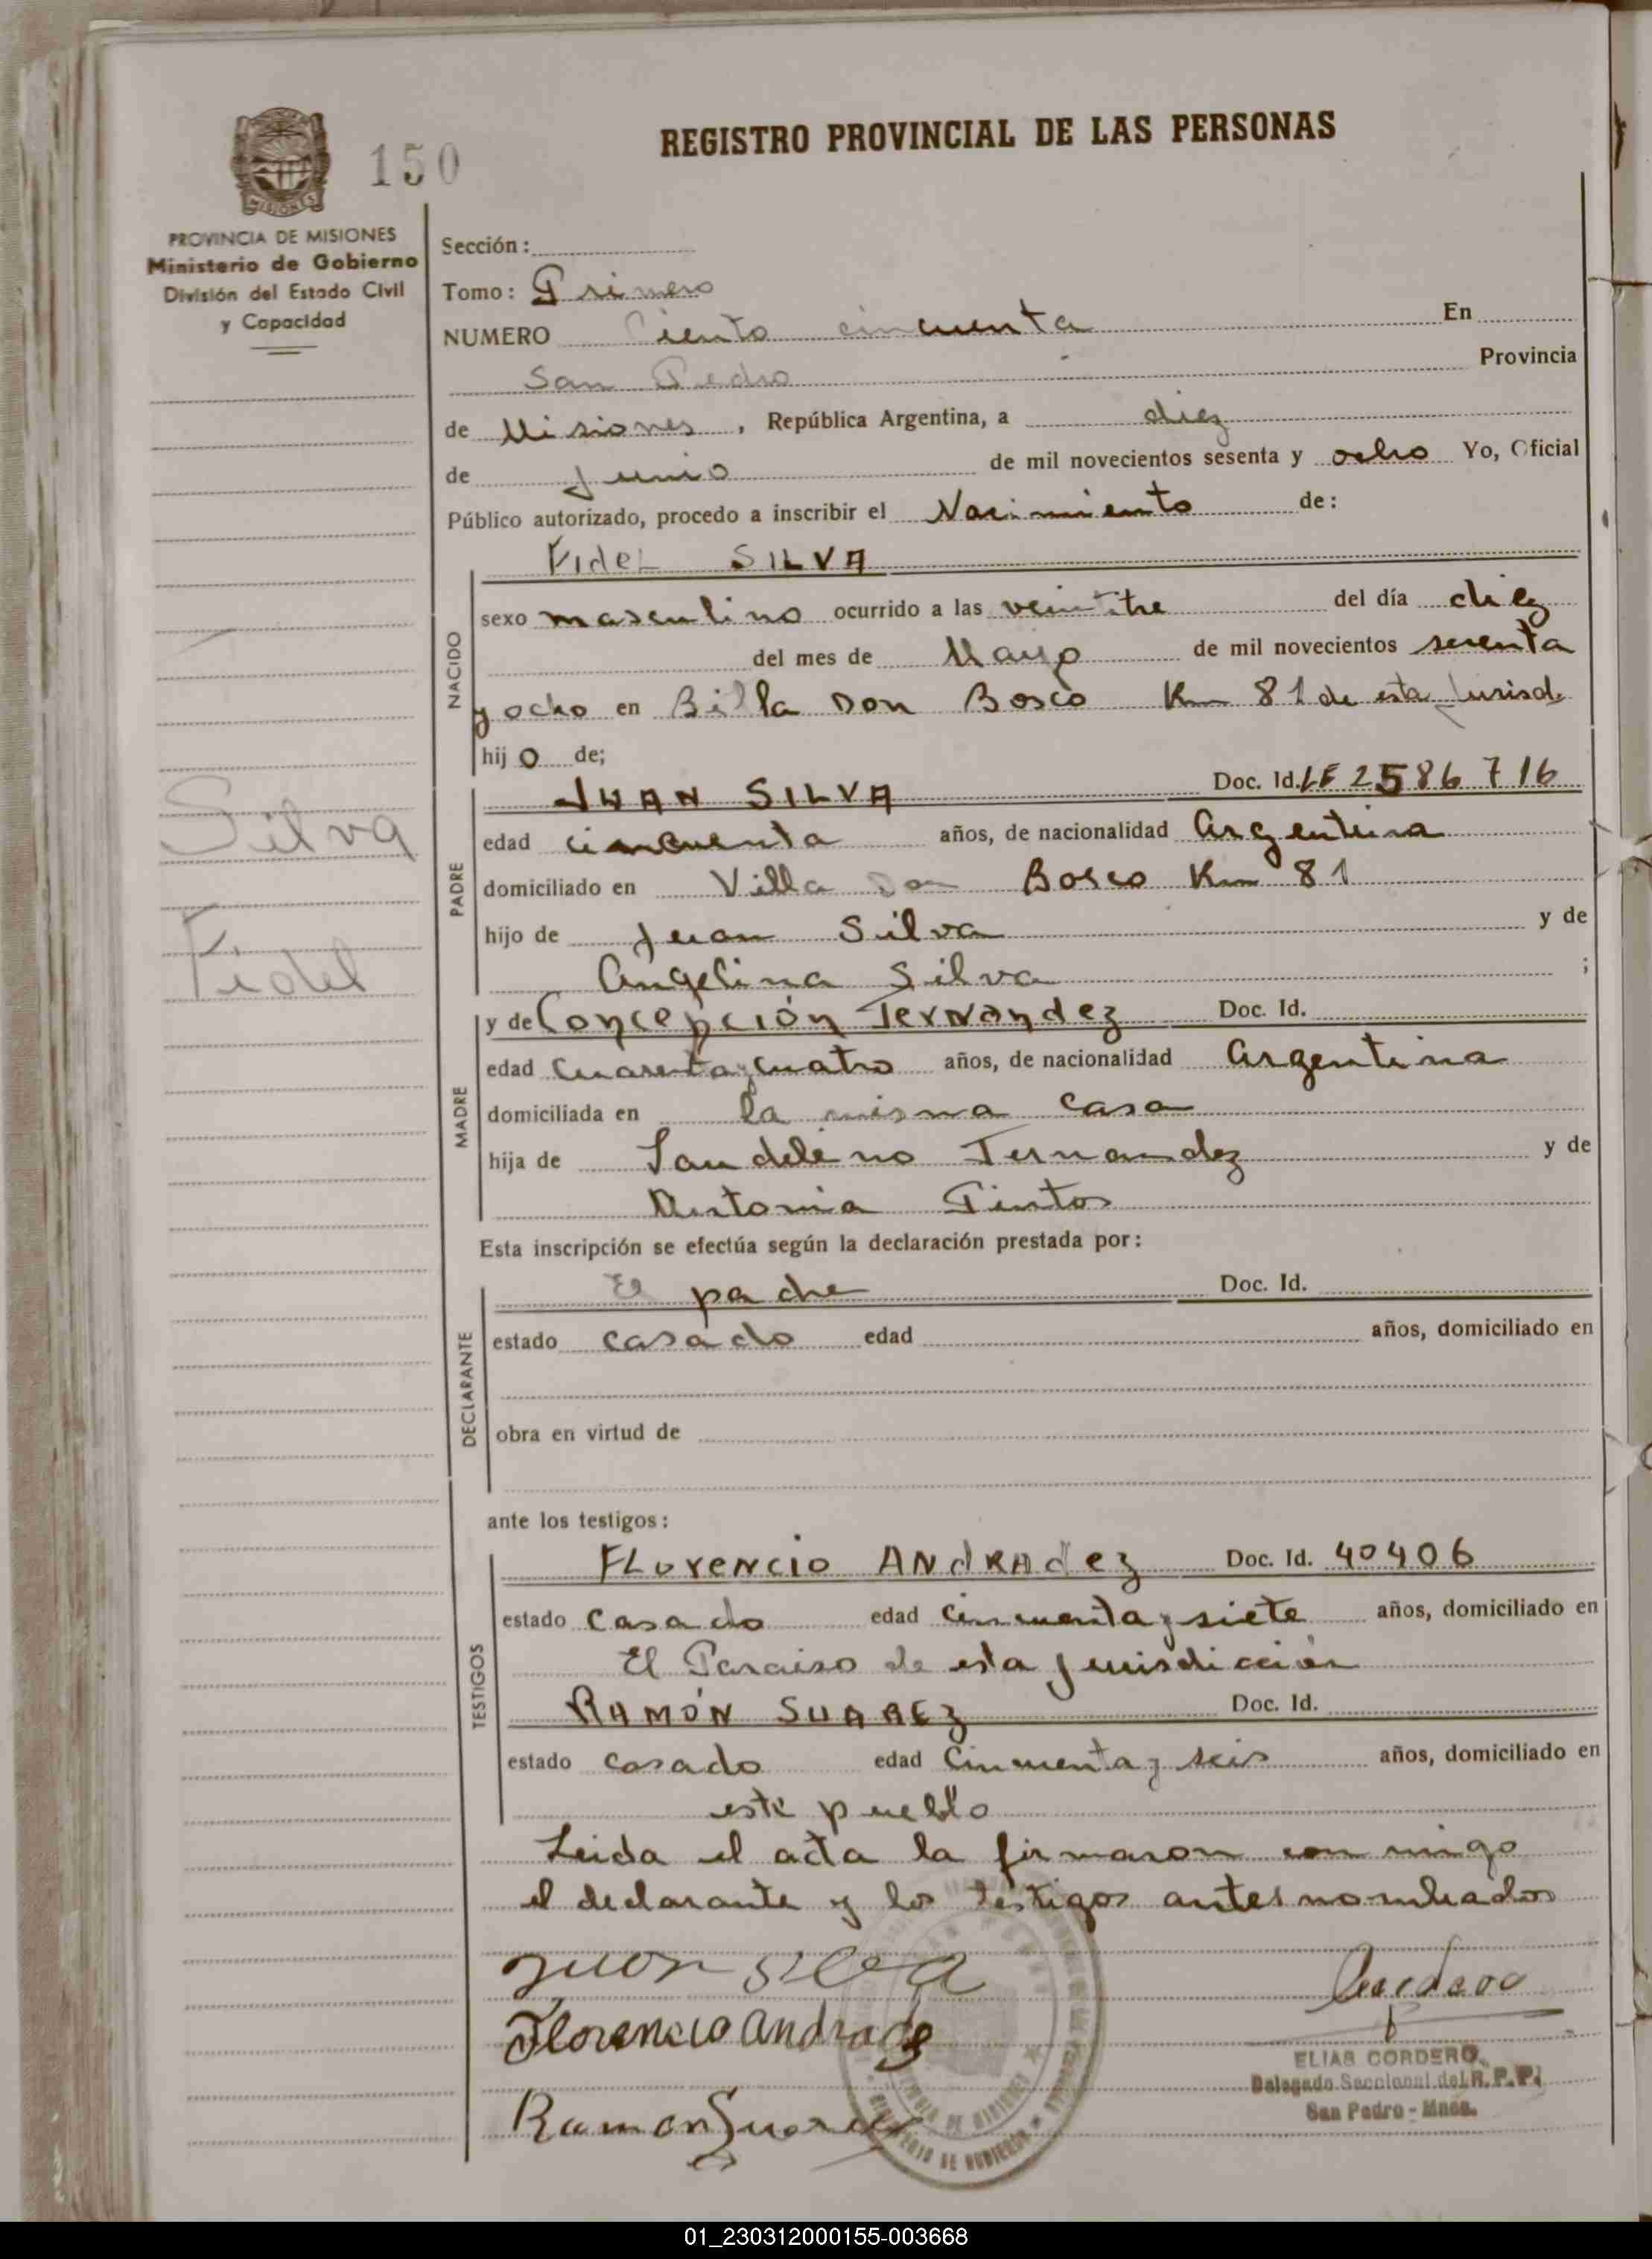 REGISTRO PROVINCIAL DE LAS PERSONAS
MISIONES
150
PROVINCIA DE MISIONES
Ministerio de Gobierno
División del Estado Civil
y Capacidad
Silva
Fidel
Sección:
Tomo: Primero
NUMERO Ciento cincuenta En
San Pedro Provincia
de Misiones, República Argentina, a diez
de Junio de mil novecientos sesenta y ocho Yo, Oficial
Público autorizado, procedo a inscribir el Nacimiento de:
NACIDO
Fidel SILVA
sexo masculino ocurrido a las veintitre del día diez
del mes de Mayo de mil novecientos sesenta
y ocho en Billa Don Bosco Km 81 de esta Jurisd.
hijo de;
PADRE
JUAN SILVA Doc. Id. LE 2586716
edad cincuenta años, de nacionalidad Argentina
domiciliado en Villa Don Bosco Km 81
hijo de Juan Silva y de
Angelina Silva ;
MADRE
y de Concepción Fernandez Doc. Id.
edad Cuarenta y cuatro años, de nacionalidad Argentina
domiciliada en la misma casa
hija de Fernandez y de
Antonia Pintos
Esta inscripción se efectúa según la declaración prestada por:
DECLARANTE
El padre Doc. Id.
estado casado edad años, domiciliado en
obra en virtud de
ante los testigos:
TESTIGOS
FLORENCIO ANdRAdez Doc. Id. 40406
estado Casado edad Cincuenta y siete años, domiciliado en
El Paraiso de esta jurisdicción
RAMÓN SUAREZ Doc. Id.
estado casado edad Cincuenta y seis años, domiciliado en
este pueblo
Leida el acta la firmaron conmigo
el declarante y los testigos antes nombrados
Juan Silva
Florencio Andrade
Ramon Suarez
Cordero
ELIAS CORDERO
Delegado Seccional del R. P. P.
San Pedro - Mnes.
01_230312000155-003668